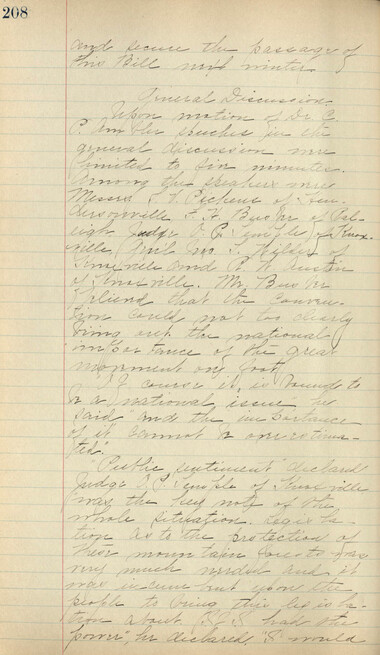 208
and secure the passage of
this Bill next winter.
General Discussion.
Upon motion of Dr. C.
P. Ambler speeches in the
general discussion were
limited to six minutes.
Among the speakers were
Messrs. Pickens of Hen-
dersonville, F. H. Busbee of Ral-
eigh, Judge O. P. Temple of Knox-
ville, Genl. Jno. T. Wilder
Knoxville and R. W. Austin
of Knoxville. Mr. Busbee
believed that the Conven-
tion could not too clearly
bring out the national
importance of the great
movement on foot.
"Of course it is bound to
be a national issue" he
said "and the importance
of it cannot be overestima-
ted."
"Public sentiment" declared
Judge O. P. Temple of Knoxville
"was the key note of the
whole situation. Legisla-
tion as to the protection of
these mountain forests was
very much needed and it
was incumbent upon the
people to bring this legisla-
tion about. If I had the
power", he declared, "I would